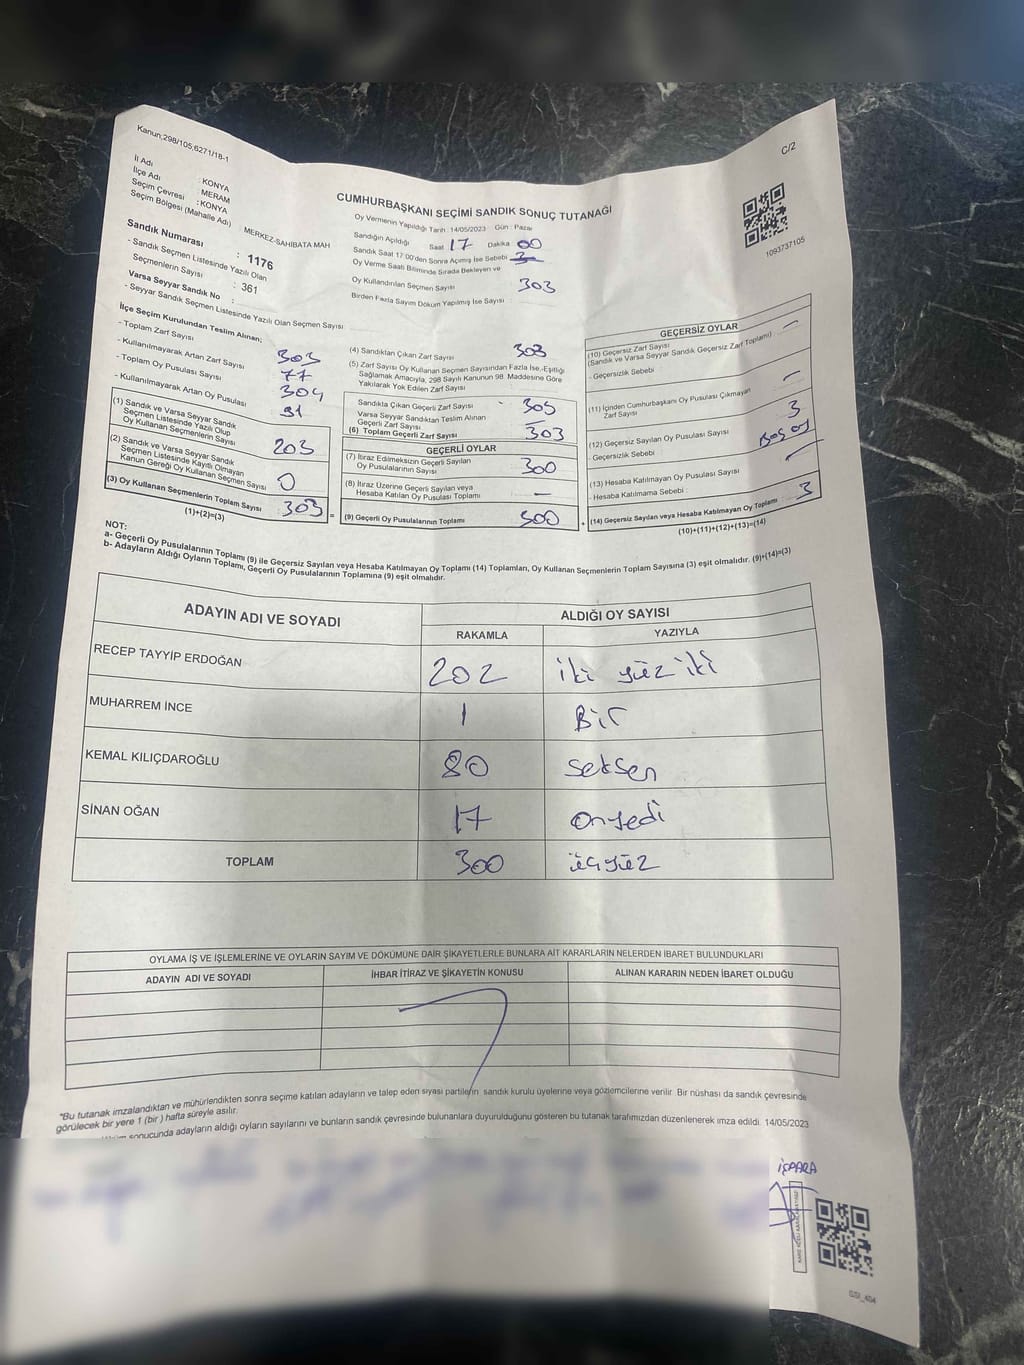 Kanun;298/105,6271/18-1
C/2
İl Adı : KONYA
İlçe Adı : MERAM
Seçim Çevresi : KONYA
Seçim Bölgesi (Mahalle Adı) : MERKEZ-SAHİBATA MAH
Sandık Numarası : 1176
- Sandık Seçmen Listesinde Yazılı Olan
Seçmenlerin Sayısı : 361
Varsa Seyyar Sandık No :
- Seyyar Sandık Seçmen Listesinde Yazılı Olan Seçmen Sayısı :
CUMHURBAŞKANI SEÇİMİ SANDIK SONUÇ TUTANAĞI
Oy Vermenin Yapıldığı Tarih : 14/05/2023 Gün : Pazar
Sandığın Açıldığı Saat 17 Dakika 00
Sandık Saat 17:00'den Sonra Açılmış İse Sebebi
Oy Verme Saati Bitiminde Sırada Bekleyen ve
Oy Kullandırılan Seçmen Sayısı 303
Birden Fazla Sayım Döküm Yapılmış İse Sayısı
1093737105
İlçe Seçim Kurulundan Teslim Alınan;
- Toplam Zarf Sayısı 303
- Kullanılmayarak Artan Zarf Sayısı 77
- Toplam Oy Pusulası Sayısı 304
- Kullanılmayarak Artan Oy Pusulası 91
(1) Sandık ve Varsa Seyyar Sandık
Seçmen Listesinde Yazılı Olup
Oy Kullanan Seçmenlerin Sayısı 203
(2) Sandık ve Varsa Seyyar Sandık
Seçmen Listesinde Kayıtlı Olmayan
Kanun Gereği Oy Kullanan Seçmen Sayısı 0
(3) Oy Kullanan Seçmenlerin Toplam Sayısı 303 =
(1)+(2)=(3)
(4) Sandıktan Çıkan Zarf Sayısı 303
(5) Zarf Sayısı Oy Kullanan Seçmen Sayısından Fazla İse,-Eşitliği
Sağlamak Amacıyla, 298 Sayılı Kanunun 98. Maddesine Göre
Yakılarak Yok Edilen Zarf Sayısı -
Sandıkta Çıkan Geçerli Zarf Sayısı 303
Varsa Seyyar Sandıktan Teslim Alınan
Geçerli Zarf Sayısı -
(6) Toplam Geçerli Zarf Sayısı 303
GEÇERLİ OYLAR
(7) İtiraz Edilmeksizin Geçerli Sayılan
Oy Pusulalarının Sayısı 300
(8) İtiraz Üzerine Geçerli Sayılan veya
Hesaba Katılan Oy Pusulası Toplamı -
(9) Geçerli Oy Pusulalarının Toplamı 300 +
GEÇERSİZ OYLAR
(10) Geçersiz Zarf Sayısı -
(Sandık ve Varsa Seyyar Sandık Geçersiz Zarf Toplamı)
- Geçersizlik Sebebi
(11) İçinden Cumhurbaşkanı Oy Pusulası Çıkmayan
Zarf Sayısı -
(12) Geçersiz Sayılan Oy Pusulası Sayısı 3
- Geçersizlik Sebebi Boş oy
(13) Hesaba Katılmayan Oy Pusulası Sayısı -
- Hesaba Katılmama Sebebi :
(14) Geçersiz Sayılan veya Hesaba Katılmayan Oy Toplamı 3
(10)+(11)+(12)+(13)=(14)
NOT:
a- Geçerli Oy Pusulalarının Toplamı (9) ile Geçersiz Sayılan veya Hesaba Katılmayan Oy Toplamı (14) Toplamları, Oy Kullanan Seçmenlerin Toplam Sayısına (3) eşit olmalıdır. (9)+(14)=(3)
b- Adayların Aldığı Oyların Toplamı, Geçerli Oy Pusulalarının Toplamına (9) eşit olmalıdır.
ADAYIN ADI VE SOYADI ALDIĞI OY SAYISI
RAKAMLA YAZIYLA
RECEP TAYYİP ERDOĞAN 202 iki yüz iki
MUHARREM İNCE 1 Bir
KEMAL KILIÇDAROĞLU 80 seksen
SİNAN OĞAN 17 onyedi
TOPLAM 300 üçyüz
OYLAMA İŞ VE İŞLEMLERİNE VE OYLARIN SAYIM VE DÖKÜMÜNE DAİR ŞİKAYETLERLE BUNLARA AİT KARARLARIN NELERDEN İBARET BULUNDUKLARI
ADAYIN ADI VE SOYADI İHBAR İTİRAZ VE ŞİKAYETİN KONUSU ALINAN KARARIN NEDEN İBARET OLDUĞU
*Bu tutanak imzalandıktan ve mühürlendikten sonra seçime katılan adayların ve talep eden siyasi partilerin sandık kurulu üyelerine veya gözlemcilerine verilir. Bir nüshası da sandık çevresinde
görülecek bir yere 1 (bir ) hafta süreyle asılır.
sonucunda adayların aldığı oyların sayılarını ve bunların sandık çevresinde bulunanlara duyurulduğunu gösteren bu tutanak tarafımızdan düzenlenerek imza edildi. 14/05/2023